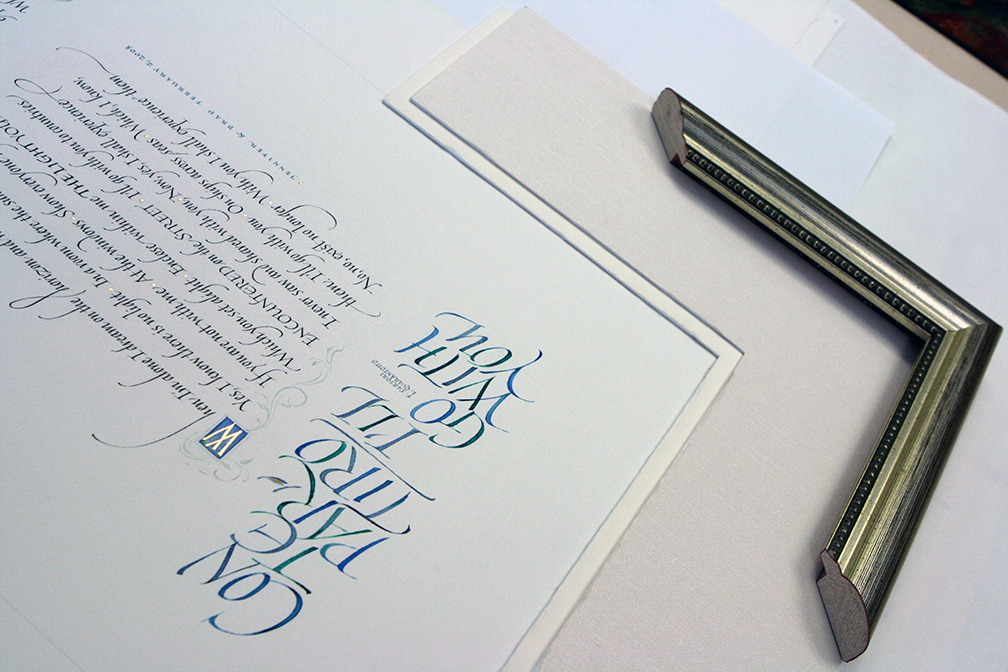 CON
TE
PAR-
TIRO
I'LL
GO
WITH
YOU
F. SARTORI
L. QUARANTOTTO
When I'm alone I dream on the horizon and
Yes, I know there is no light · In a room where the sun
If you are not with me · At the windows · Show everyone
Which you set alight · Enclose within me · THE LIGHT YOU
ENCOUNTERED on the STREET · I'll go with you to countries
I never saw and shared with you · Now, yes, I shall experience
them · I'll go with you · On ships across seas · Which, I know,
No, no, exist no longer · With you I shall experience them
JENNIFER & BRAD · FEBRUARY 2, 2008